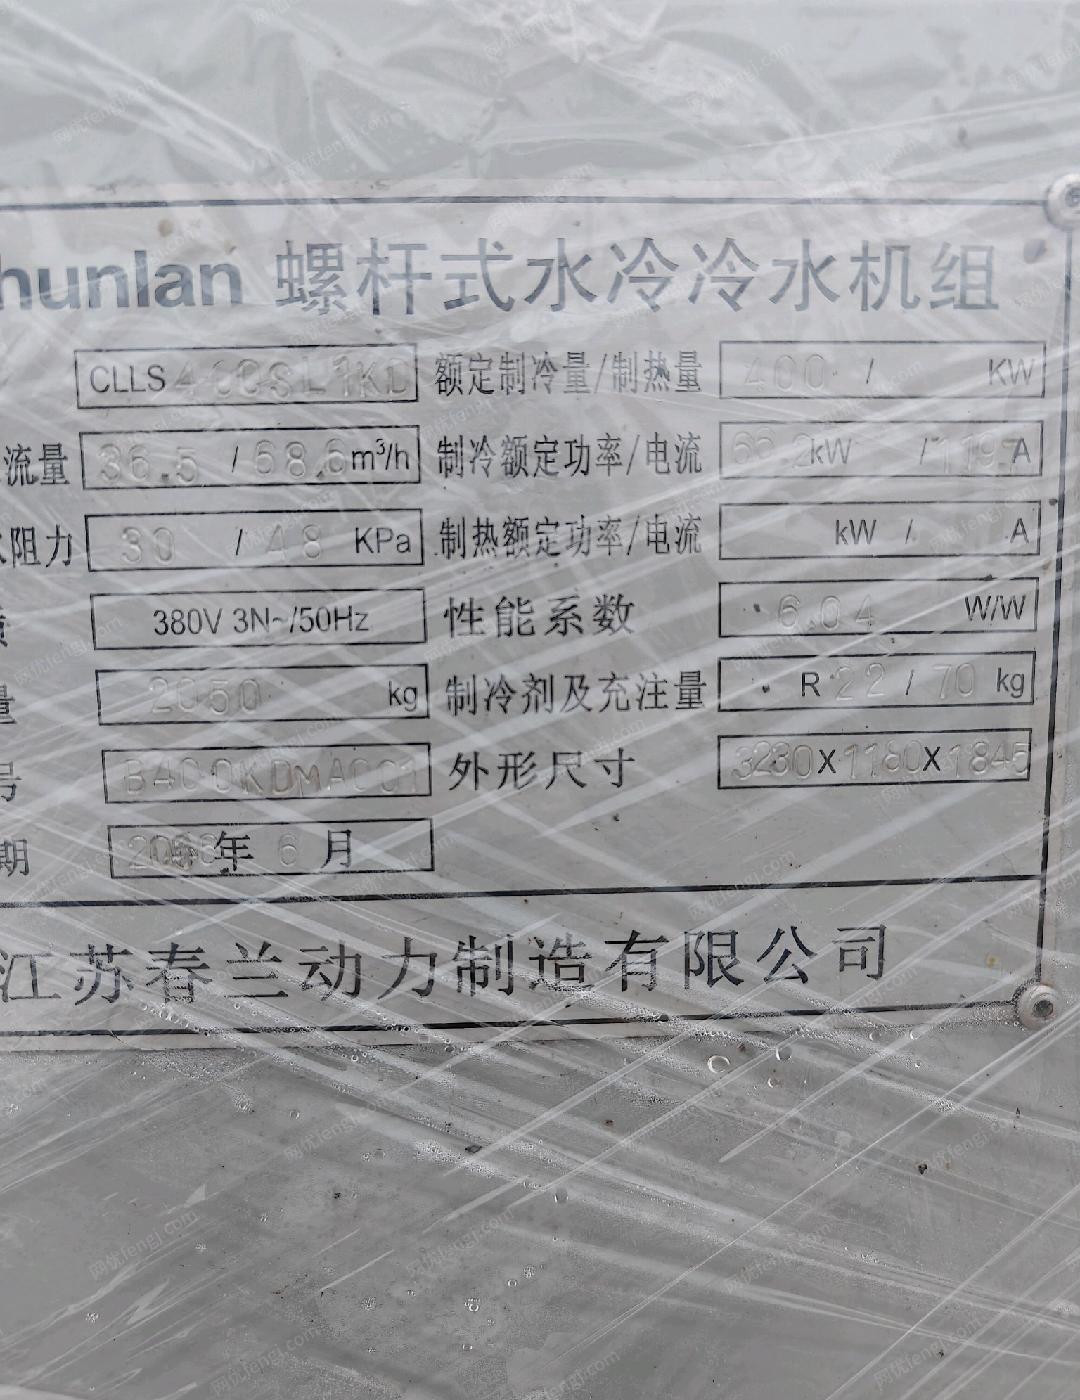 hunlan 螺杆式水冷冷水机组
CLLS 400SL1KD 额定制冷量/制热量 400 / KW
流量 36.5 / 68.6 m³/h 制冷额定功率/电流 66.2kW / 119 A
阻力 30 / 48 KPa 制热额定功率/电流 kW / A
380V 3N~/50Hz 性能系数 6.04 W/W
量 2050 kg 制冷剂及充注量 R 22 / 70 kg
号 外形尺寸 3280X1180X1845
期 年 6 月
江苏春兰动力制造有限公司